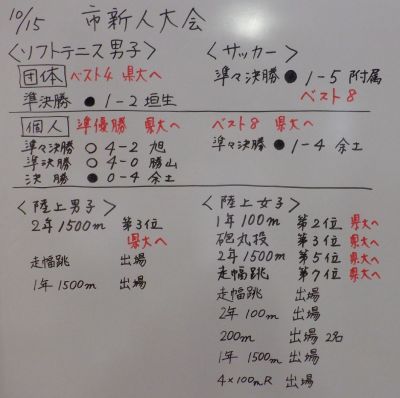 10/15 市新人大会
<ソフトテニス男子>
団体 ベスト4 県大へ
準決勝 ● 1-2 垣生
<サッカー>
準々決勝 ● 1-5 附属
ベスト8
個人 準優勝 県大へ
準々決勝 ○ 4-2 旭
準決勝 ○ 4-0 勝山
決勝 ● 0-4 余土
ベスト8 県大へ
準々決勝 ● 1-4 余土
<陸上男子>
2年1500m 第3位
県大へ
走幅跳 出場
1年1500m 出場
<陸上女子>
1年100m 第2位 県大へ
砲丸投 第3位 県大へ
2年1500m 第5位 県大へ
走幅跳 第7位 県大へ
走幅跳 出場
2年100m 出場
200m 出場 2名
1年1500m 出場
4×100mR 出場